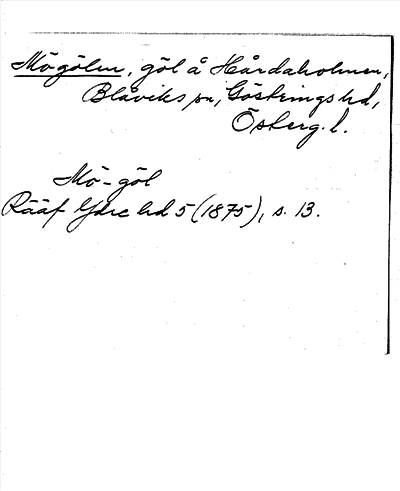 Mögölen, göl å Hårdaholmen,
Blåviks sn, Göstrings hd,
Österg. l.
Mö-göl
Rääf Ydre hd 5 (1875), s. 13.